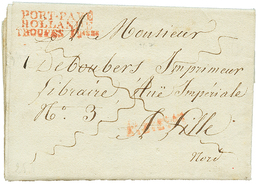 PORT-PAYÉ
HOLLANDE
A Monsieur
Deboubers Imprimeur
libraire Rue Impériale
N.o 3. A Lille
Nord